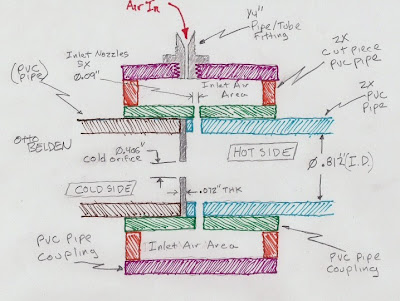 Air In
1/4"
Pipe/Tube
Fitting
Inlet Nozzles
5X
Ø.09"
Inlet Air
Area
2X
Cut piece
PVC PIPE
(PVC
PIPE)
2X
PVC
PIPE
Otto
BELDEN
Ø.406"
cold orifice
HOT SIDE
Ø.812"(I.D.)
COLD SIDE
.072" THK
PVC PIPE
Coupling
Inlet Air Area
PVC Pipe
Coupling